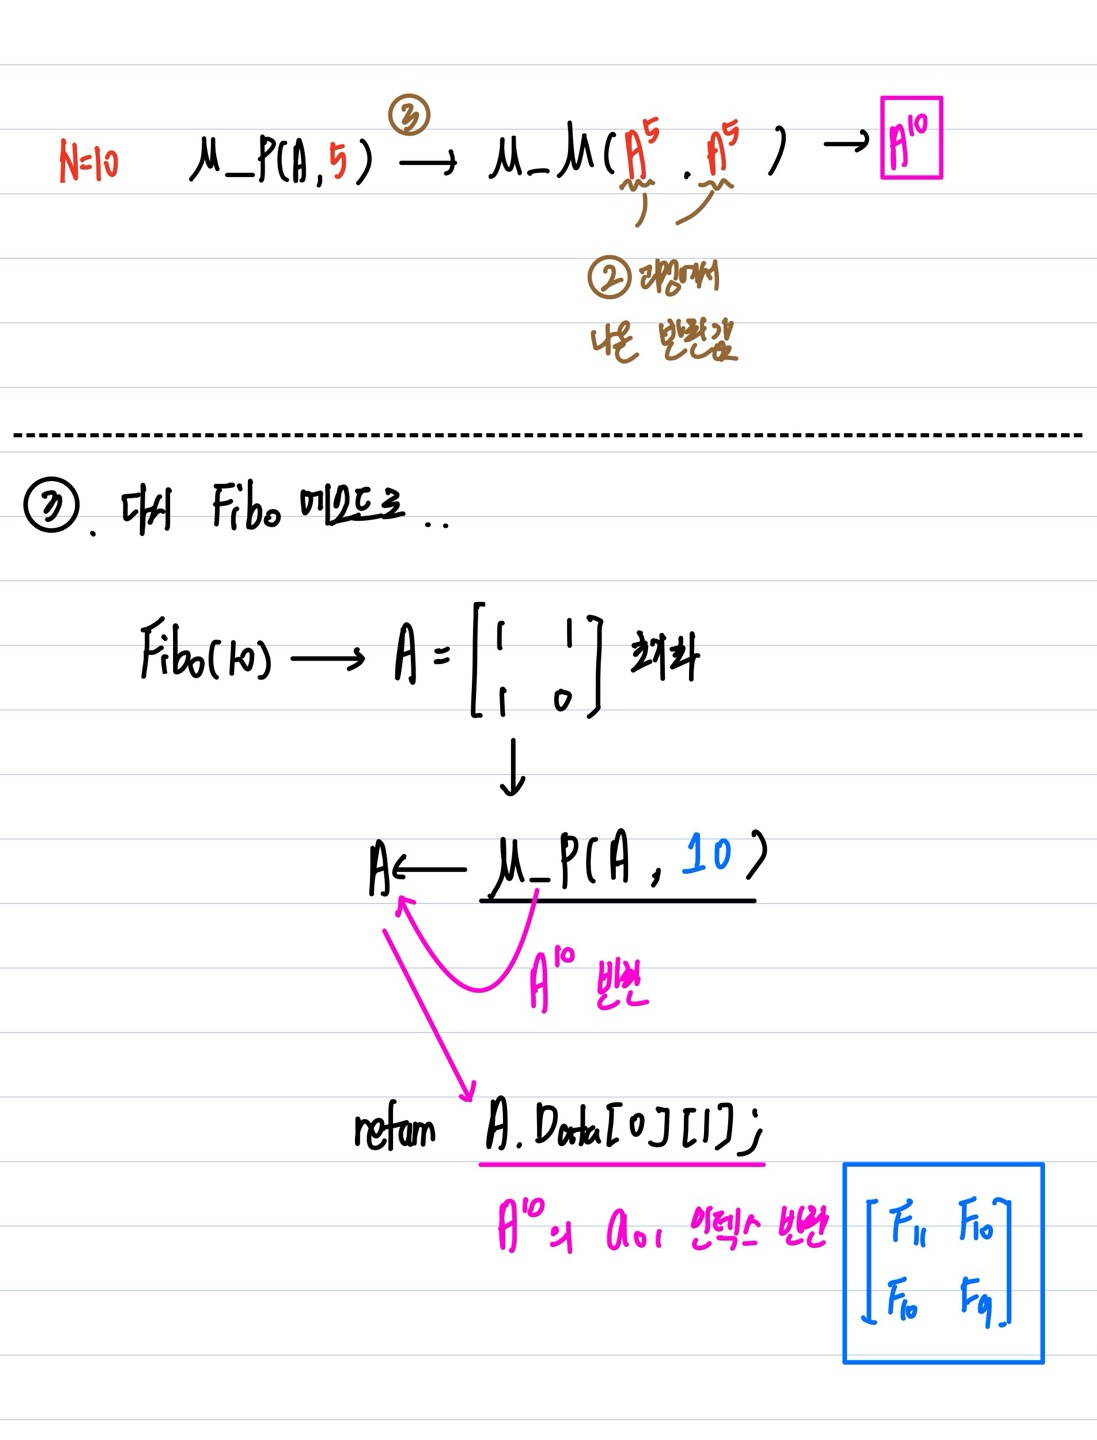 ③
N=10 M_P(A,5) → M_M(A⁵, A⁵) → A¹⁰
② 과정에서
나온 반환값
③. 다시 Fibo 메소드로..
Fibo(10) → A = [1 1
1 0] 초기화
↓
A ← M_P(A, 10)
A¹⁰ 반환
return A.Data[0][1];
A¹⁰의 a₀₁ 인덱스 반환
[F₁₁ F₁₀
F₁₀ F₉]